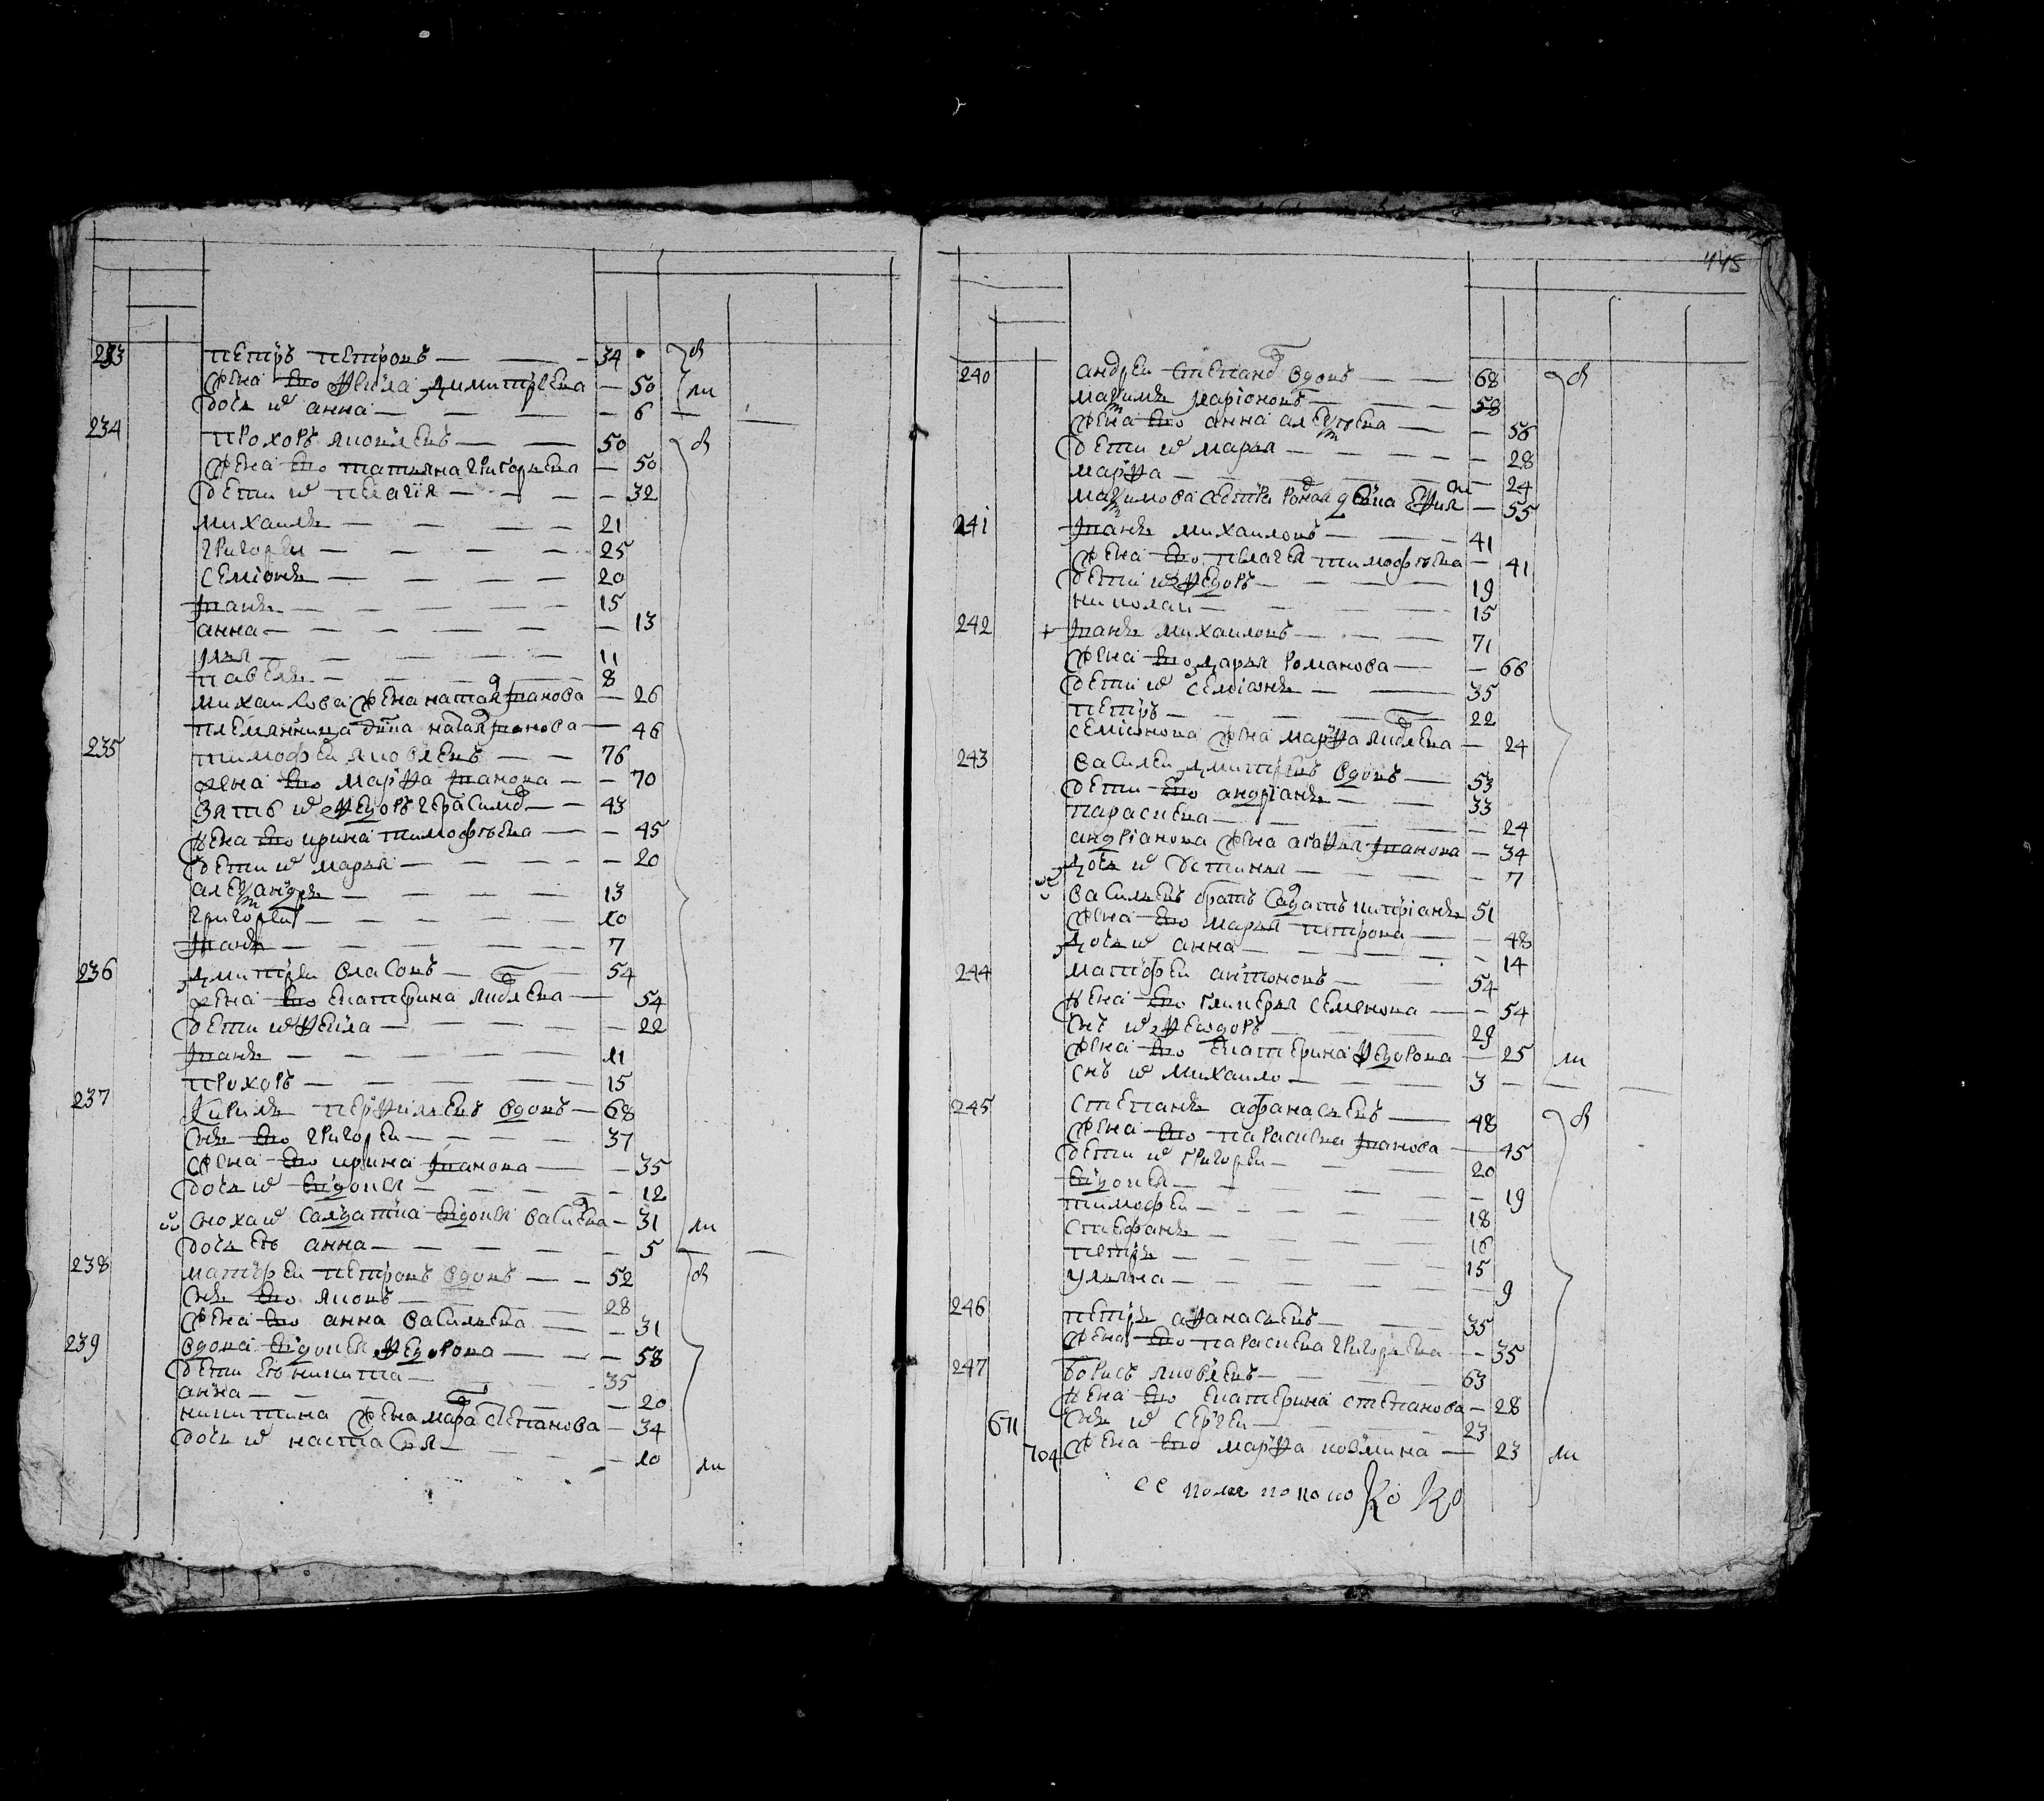 233 Петръ Петровъ — — — 34
Жена его Фекла Димитриева — 50
Дочь и͠ Анна — — — — 6
234 Прохоръ Яковлевъ — — 50
Жена его Татьяна Григорьева — 50
Дети и͠ Пелагия — — — — 32
Михаилъ — — — — 21
Григореи — — — — 25
Семионъ — — — — 20
Иванъ — — — — 15
Анна — — — — — 13
Илья — — — — 11
Павелъ — — — — 8
Михаилова жена Наталя Иванова — 26
Племянница Наталя Иванова — 46
235 Тимофеи Яковлевъ — — 76
Жена его Марфа Иванова — — 70
Зять и͠ Федоръ Герасимов — — 43
Жена его Ирина Тимофѣева — — 45
Дети и͠ Марья — — — — 20
Алеѯандръ — — — 13
Григореи — — — — 10
Иванъ — — — — 7
236 Дмитреи Власовъ — — 54
Жена его Екатерина Яковлева — 54
Дети и͠ Фекла — — — — 22
Иванъ — — — — 11
Прохоръ — — — — 15
237 Кирилъ Перфильевъ вдовъ — 68
Снъ его Григореи — — — 37
Жена его Ирина Иванова — — 35
Дочь и͠ Евдокия — — — — 12
Сноха и͠ салдатка Евдокия Василева — 31 ли
Дочь еѣ Анна — — — — 5
238 Матфеи Петровъ вдовъ — — 52
Снъ его Яковъ — — — 28
Жена его Анна Васильева — — 31
239 Вдова Евдокея Федорова — — 58
Дети еѣ Никита — — — 35
Анна — — — — 20
Никитина жена Марфа Степанова — 34
Дочь и͠ Настасья — — — 10 ли
445
240 Андреи Степанов вдовъ — — 68
Маѯимъ Ларионовъ — — — 58
Жена его Анна Алеѯеева — — — 56
Дети и͠ Марья — — — — 28
Марфа — — — — — 24
Маѯимова сестра — 55
241 Иванъ Михаиловъ — — — 41
Жена его Пелагея Тимофѣева — 41
Дети и͠ Федоръ — — — 19
Николаи — — — — 15
242 + Иванъ Михаиловъ — — — 71
Жена его Дарья Романова — — 66
Дети и͠ Семионъ — — — 35
Петръ — — — — 22
Семионова жена Марфа Яковлева — 24
243 Василеи Дмитревъ вдовъ — 53
Дети его Андрианъ — — 33
Параскева — — — — 24
Андрианова жена Агафья Иванова — 34
Дочь и͠ Устинья — — — — 7
Васильевъ братъ салдатъ Киприанъ 51
Жена его Марья Петрова — — 48
Дочь и͠ Анна — — — — 14
244 Матфеи Антоновъ — — 54
Жена его Гликерья Семенова — — 54
Снъ и͠ Феодоръ — — — 29
Жена его Екатерина Федорова — 25 ли
Снъ и͠ Михаило — — — 3
245 Степанъ Афанасьевъ — — 48
Жена его Параскева Иванова — 45
Дети и͠ Григореи — — — 20
Евдокея — — — — — 19
Тимофеи — — — — 18
Стефанъ — — — — 16
Петръ — — — — 15
Ульяна — — — — 9
246 Петръ Афанасьевъ — — — 35
Жена его Параскева Григорьева — — 35
247 Борисъ Яковлевъ — — — 63
Жена его Екатерина Степанова — 28
671 Снъ и͠ Сергеи — — — — 23
704 Жена его Марфа Козмина — — 23 ли